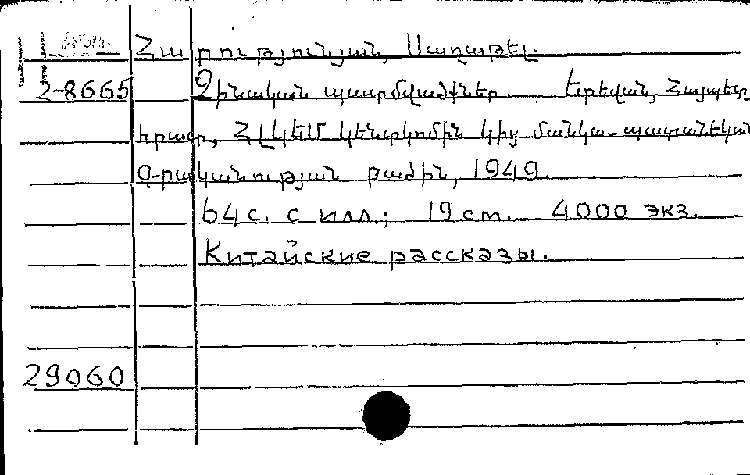 Հարությունյան, Սաղաթել.
2-8665 Չինական պատմվածքներ Երեվան, Հայպետ.
հրատ., ՀԼԿԵՄ կենտկոմին կից մանկա-պատանեկան
գրականության բաժին, 1949
64 с. с илл.; 19 cm. 4000 экз.
Китайские рассказы.
29060